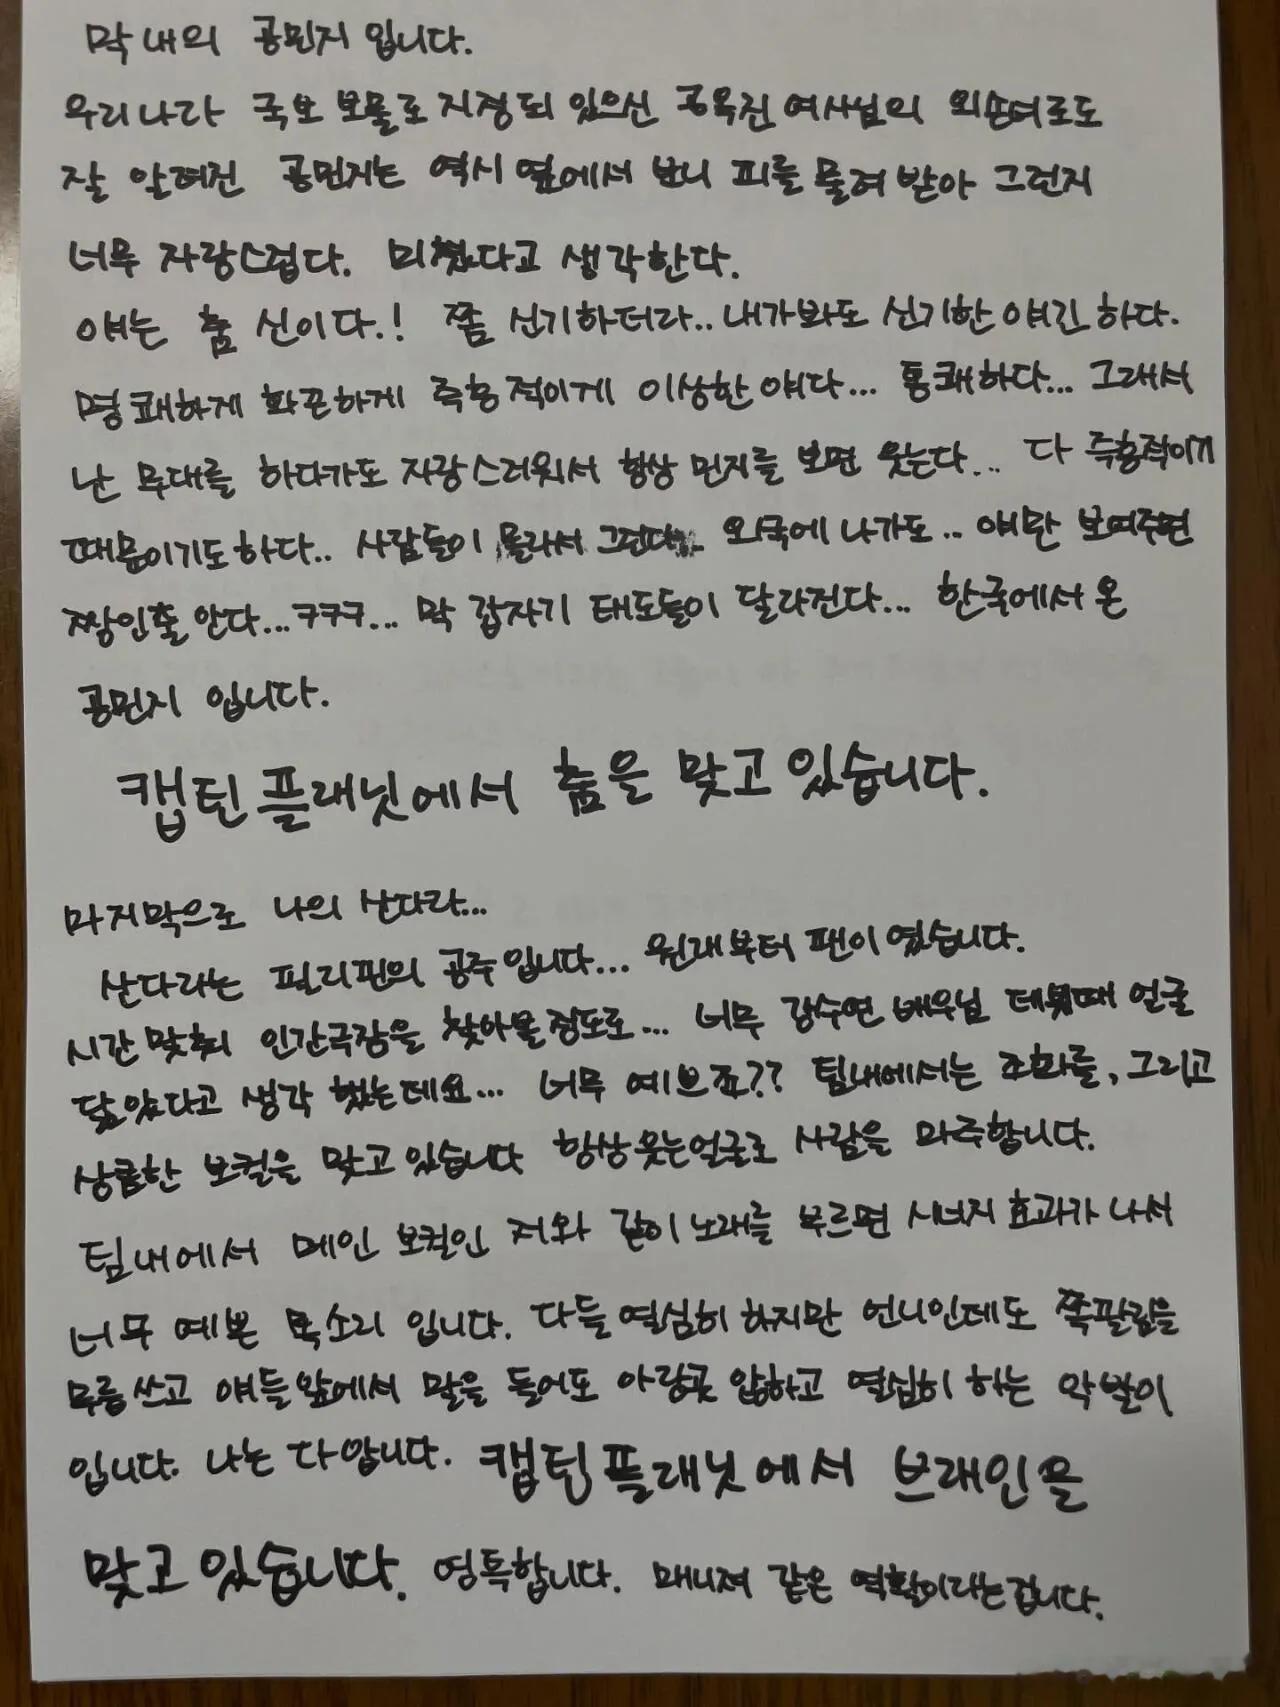 막내의 공민지 입니다.
우리나라 국보 보물로 지정되 있으신 공옥진 여사님의 외손녀로도
잘 알려진 공민지는 역시 옆에서 보니 피를 물려 받아 그런지
너무 자랑스럽다. 미쳤다고 생각한다.
얘는 춤 신이다.! 쫌 신기하더라.. 내가봐도 신기한 얘긴 하다.
명쾌하게 화끈하게 즉흥적이게 이상한 얘다... 통쾌하다... 그래서
난 무대를 하다가도 자랑스러워서 항상 민지를 보면 웃는다... 다 즉흥적이기
때문이기도하다.. 사람들이 몰라서 그런다.. 외국에 나가도.. 얘만 보여주면
짱인줄 안다...ㅋㅋㅋ... 막 갑자기 태도들이 달라진다... 한국에서 온
공민지 입니다.
캡틴플래닛에서 춤을 맞고 있습니다.
마지막으로 나의 산다라...
산다라는 필리핀의 공주입니다... 원래부터 팬이였습니다.
시간 맞춰 인간극장을 찾아볼정도로... 너무 강수연 배우님 데뷔때 얼굴
닮았다고 생각 했는데요... 너무 예쁘죠?? 팀내에서는 조화를, 그리고
상큼한 보컬을 맞고 있습니다 항상웃는얼굴로 사람을 마주합니다.
팀내에서 메인 보컬인 저와 같이 노래를 부르면 시너지 효과가 나서
너무 예쁜 목소리 입니다. 다들 열심히 하지만 언니인데도 쪽팔림을
무릎쓰고 얘들앞에서 말을 들어도 아랑곳 않하고 열심히 하는 악발이
입니다. 나는 다 압니다. 캡틴플래닛에서 브래인을
맞고 있습니다. 영특합니다. 매니져 같은 역활이라는겁니다.